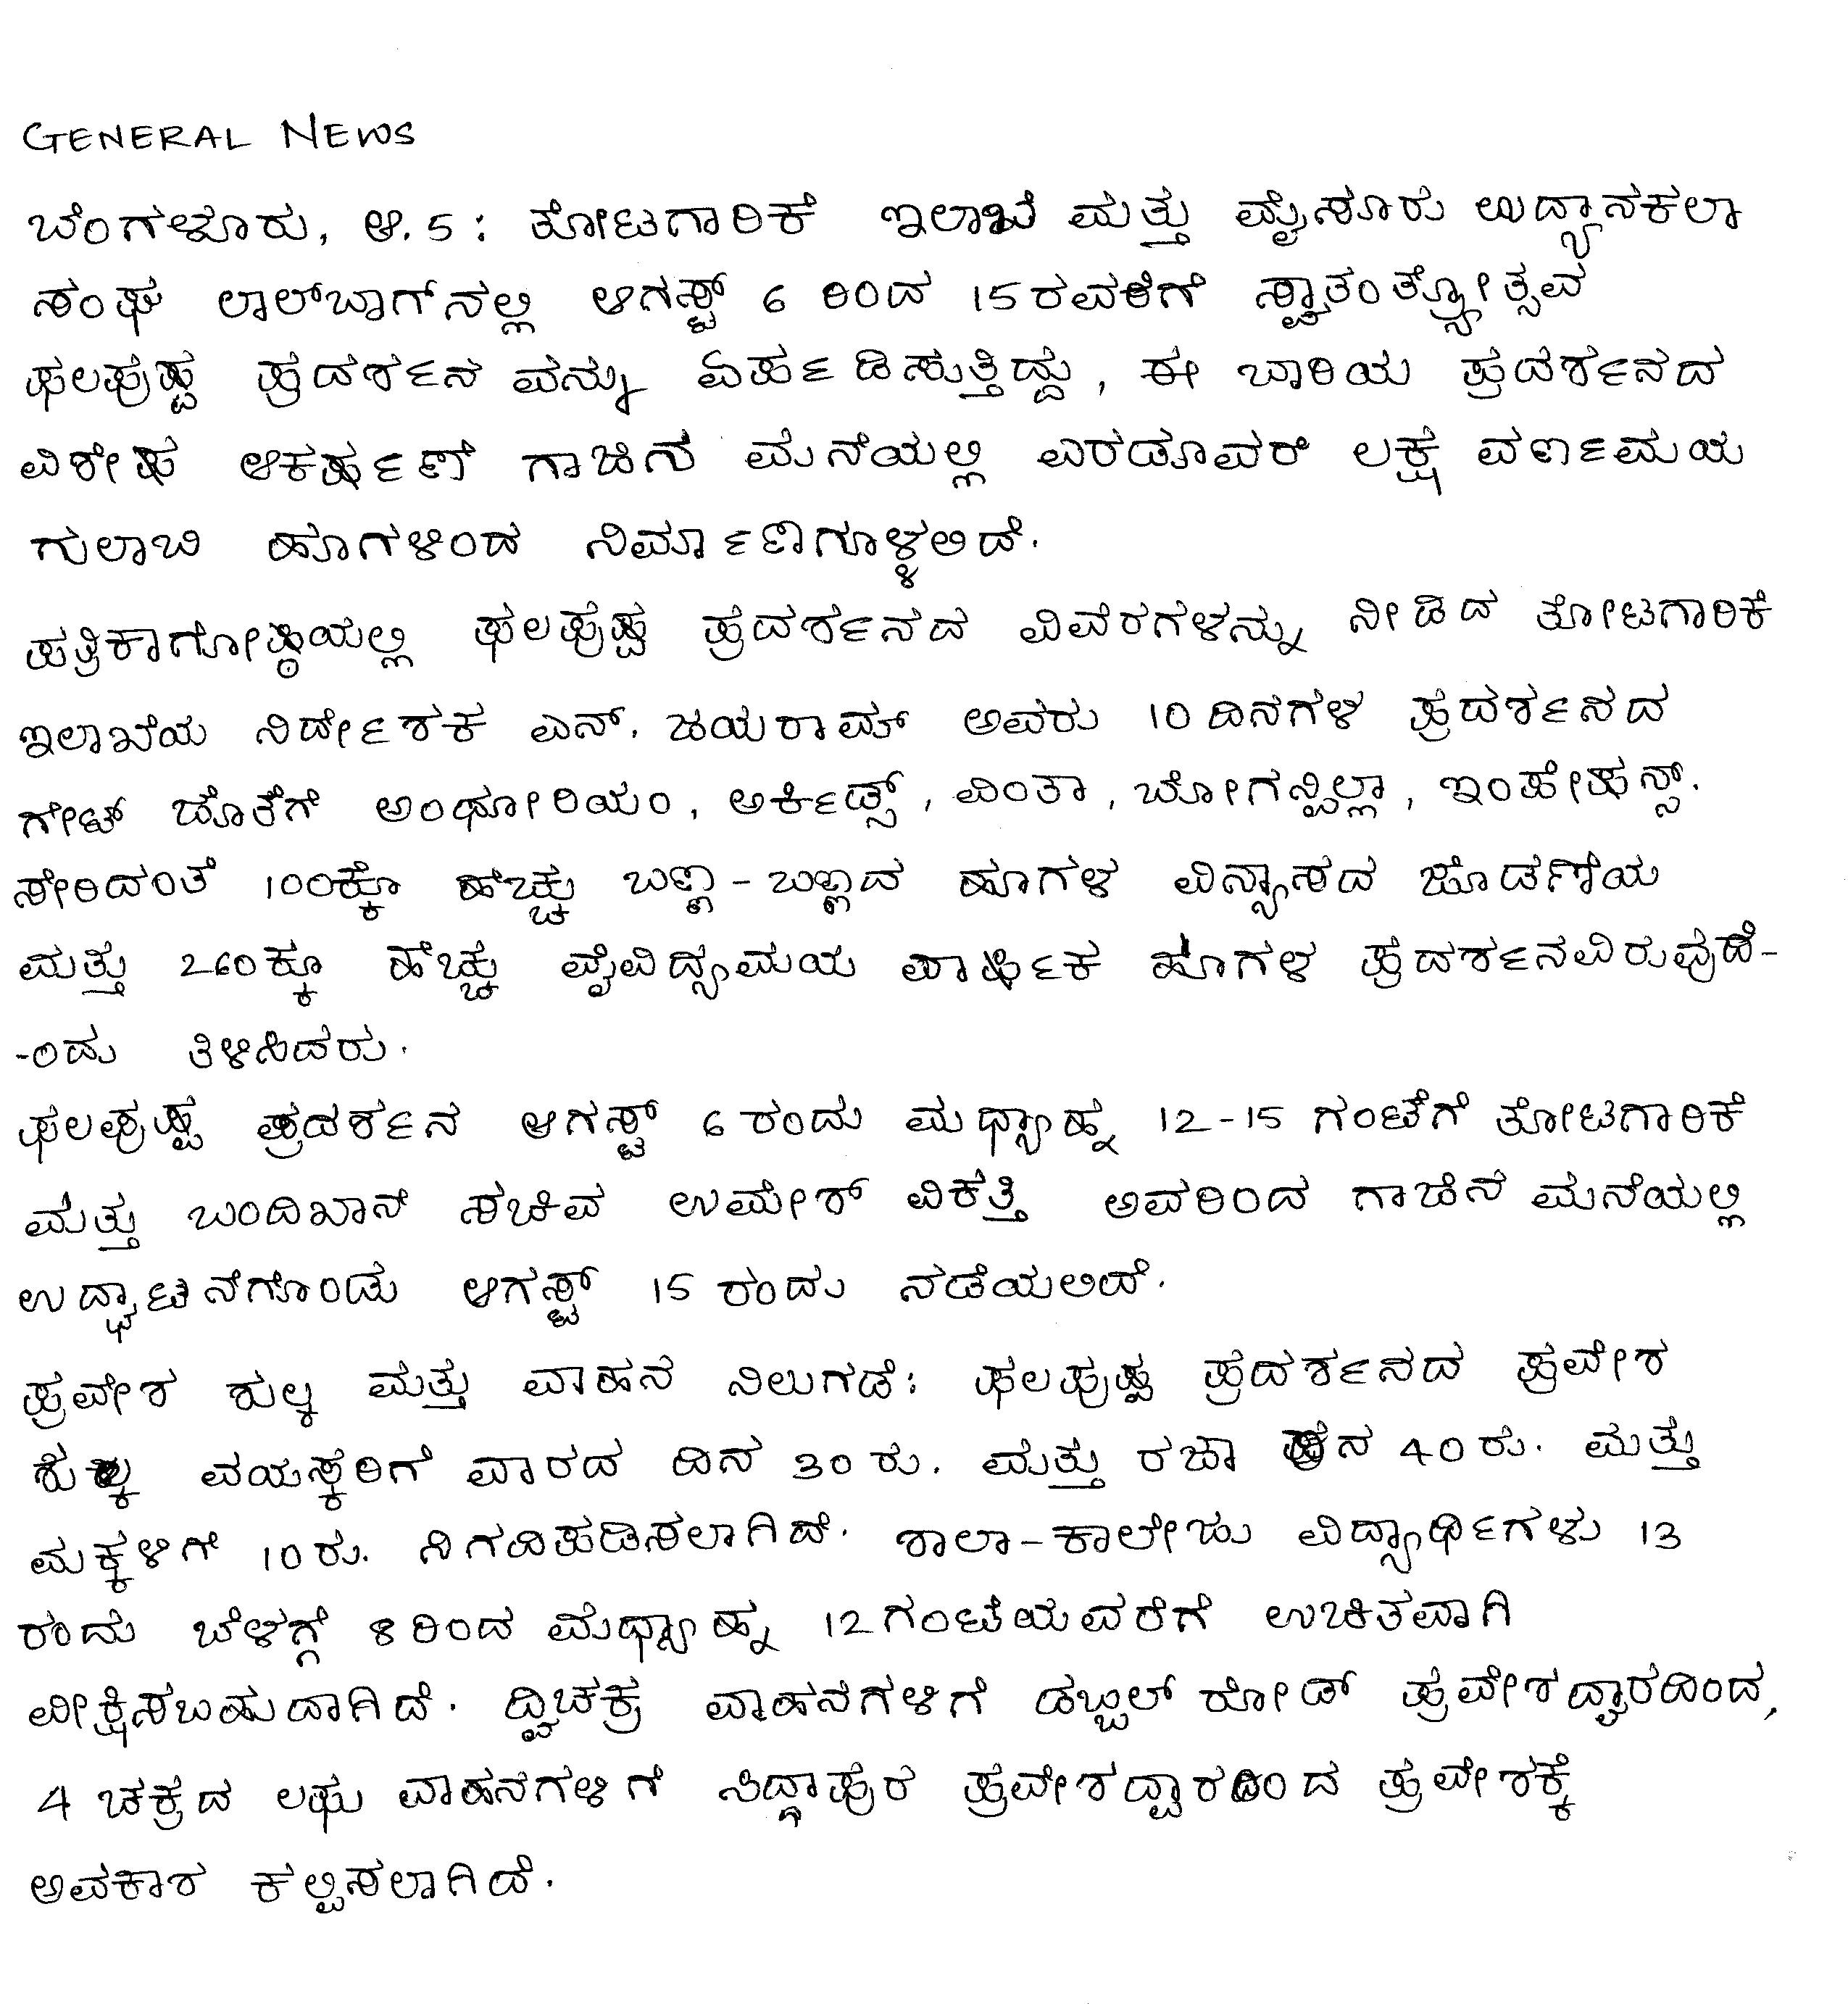 GENERAL NEWS
ಬೆಂಗಳೂರು, ಆ. 5 : ತೋಟಗಾರಿಕೆ ಇಲಾಖೆ ಮತ್ತು ಮೈಸೂರು ಉದ್ಯಾನಕಲಾ
ಸಂಘ ಲಾಲ್‌ಬಾಗ್‌ನಲ್ಲಿ ಆಗಸ್ಟ್ 6 ರಿಂದ 15ರವರೆಗೆ ಸ್ವಾತಂತ್ರ್ಯೋತ್ಸವ
ಫಲಪುಷ್ಪ ಪ್ರದರ್ಶನ ವನ್ನು ಏರ್ಪಡಿಸುತ್ತಿದ್ದು, ಈ ಬಾರಿಯ ಪ್ರದರ್ಶನದ
ವಿಶೇಷ ಆಕರ್ಷಣೆ ಗಾಜಿನ ಮನೆಯಲ್ಲಿ ಎರಡೂವರೆ ಲಕ್ಷ ವರ್ಣಮಯ
ಗುಲಾಬಿ ಹೂಗಳಿಂದ ನಿರ್ಮಾಣಗೊಳ್ಳಲಿದೆ.
ಪತ್ರಿಕಾಗೋಷ್ಠಿಯಲ್ಲಿ ಫಲಪುಷ್ಪ ಪ್ರದರ್ಶನದ ವಿವರಗಳನ್ನು ನೀಡಿದ ತೋಟಗಾರಿಕೆ
ಇಲಾಖೆಯ ನಿರ್ದೇಶಕ ಎನ್. ಜಯರಾಮ್ ಅವರು 10 ದಿನಗಳ ಪ್ರದರ್ಶನದ
ಗೇಟ್ ಜೊತೆಗೆ ಅಂಥೋರಿಯಂ, ಆರ್ಕಿಡ್ಸ್, ವಿಂಕಾ, ಬೋಗನ್ವಿಲ್ಲಾ, ಇಂಪೇಷನ್ಸ್.
ಸೇರಿದಂತೆ 100ಕ್ಕೂ ಹೆಚ್ಚು ಬಣ್ಣ - ಬಣ್ಣದ ಹೂಗಳ ವಿನ್ಯಾಸದ ಜೊಡಣೆಯ
ಮತ್ತು 260ಕ್ಕೂ ಹೆಚ್ಚು ವೈವಿದ್ಯಮಯ ವಾರ್ಷಿಕ ಹೂಗಳ ಪ್ರದರ್ಶನವಿರುವುದೆ-
-ಂದು ತಿಳಿಸಿದರು.
ಫಲಪುಷ್ಪ ಪ್ರದರ್ಶನ ಆಗಸ್ಟ್ 6 ರಂದು ಮಧ್ಯಾಹ್ನ 12-15 ಗಂಟೆಗೆ ತೋಟಗಾರಿಕೆ
ಮತ್ತು ಬಂದಿಖಾನೆ ಸಚಿವ ಉಮೇಶ್ ವಿಕತ್ತಿ ಅವರಿಂದ ಗಾಜಿನ ಮನೆಯಲ್ಲಿ
ಉದ್ಘಾಟನೆಗೊಂಡು ಆಗಸ್ಟ್ 15 ರಂದು ನಡೆಯಲಿದೆ.
ಪ್ರವೇಶ ಶುಲ್ಕ ಮತ್ತು ವಾಹನ ನಿಲುಗಡೆ: ಫಲಪುಷ್ಪ ಪ್ರದರ್ಶನದ ಪ್ರವೇಶ
ಶುಲ್ಕ ವಯಸ್ಕರಿಗೆ ವಾರದ ದಿನ 30 ರು. ಮತ್ತು ರಜಾ ದಿನ 40 ರು. ಮತ್ತು
ಮಕ್ಕಳಿಗೆ 10 ರು. ನಿಗದಿಪಡಿಸಲಾಗಿದೆ. ಶಾಲಾ-ಕಾಲೇಜು ವಿದ್ಯಾರ್ಥಿಗಳು 13
ರಂದು ಬೆಳಗ್ಗೆ 8 ರಿಂದ ಮಧ್ಯಾಹ್ನ 12ಗಂಟೆಯವರೆಗೆ ಉಚಿತವಾಗಿ
ವೀಕ್ಷಿಸಬಹುದಾಗಿದೆ. ದ್ವಿಚಕ್ರ ವಾಹನಗಳಿಗೆ ಡಬ್ಬಲ್ ರೋಡ್ ಪ್ರವೇಶದ್ವಾರದಿಂದ,
4 ಚಕ್ರದ ಲಘು ವಾಹನಗಳಿಗೆ ಸಿದ್ದಾಪುರ ಪ್ರವೇಶದ್ವಾರದಿಂದ ಪ್ರವೇಶಕ್ಕೆ
ಅವಕಾಶ ಕಲ್ಪಿಸಲಾಗಿದೆ.